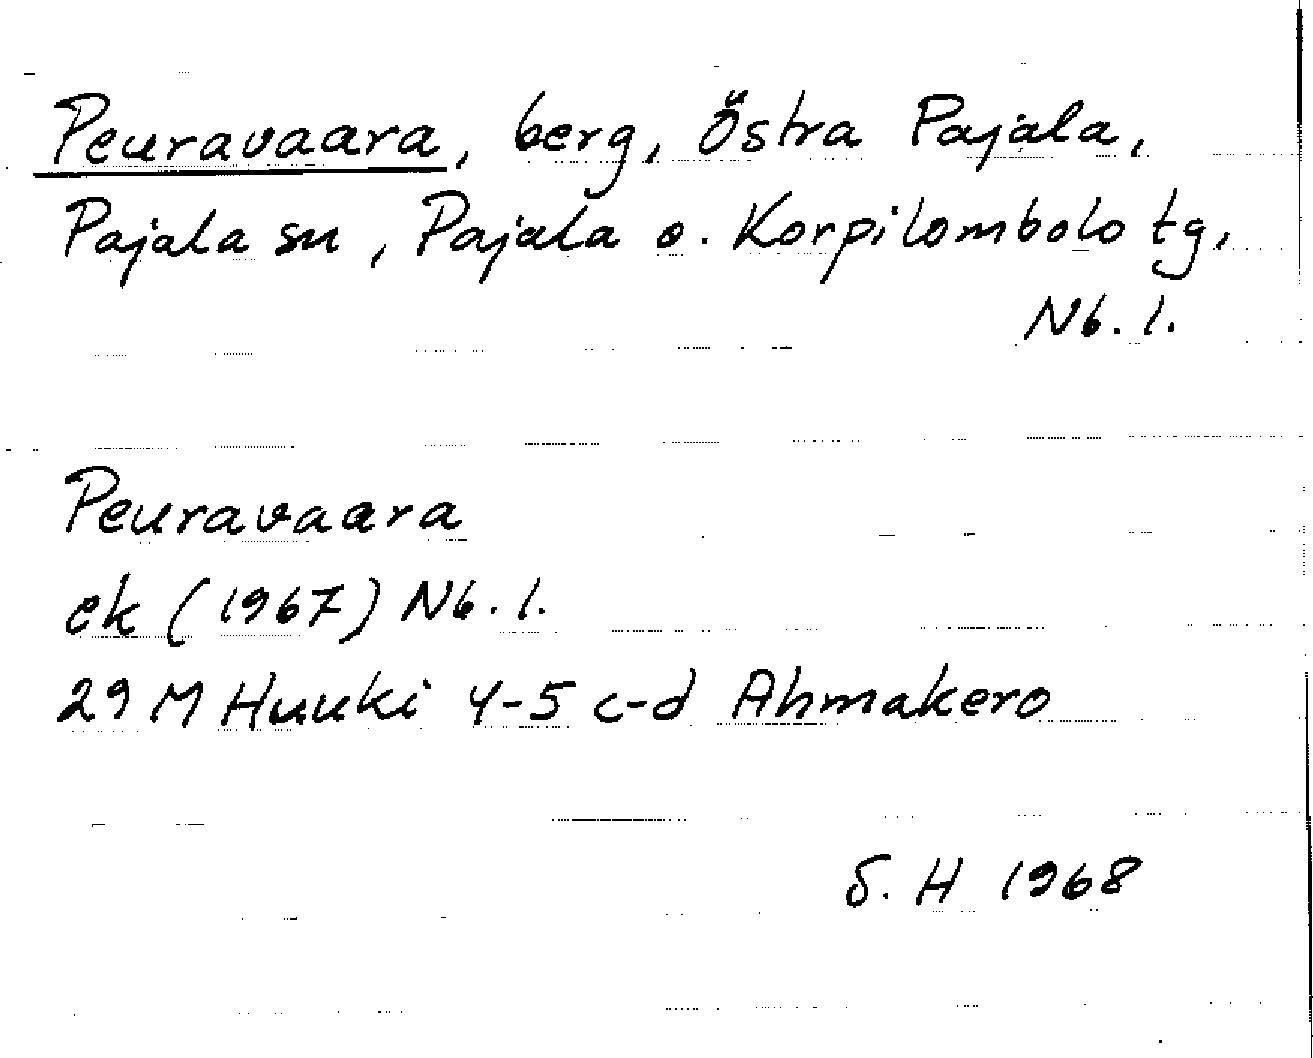 Peuravaara, berg, Östra Pajala,
Pajala sn, Pajala o. Korpilombolo tg,
Nb. l.
Peuravaara
ek (1967) Nb. l.
29 M Huuki 4-5 c-d Ahmakero
S. H 1968